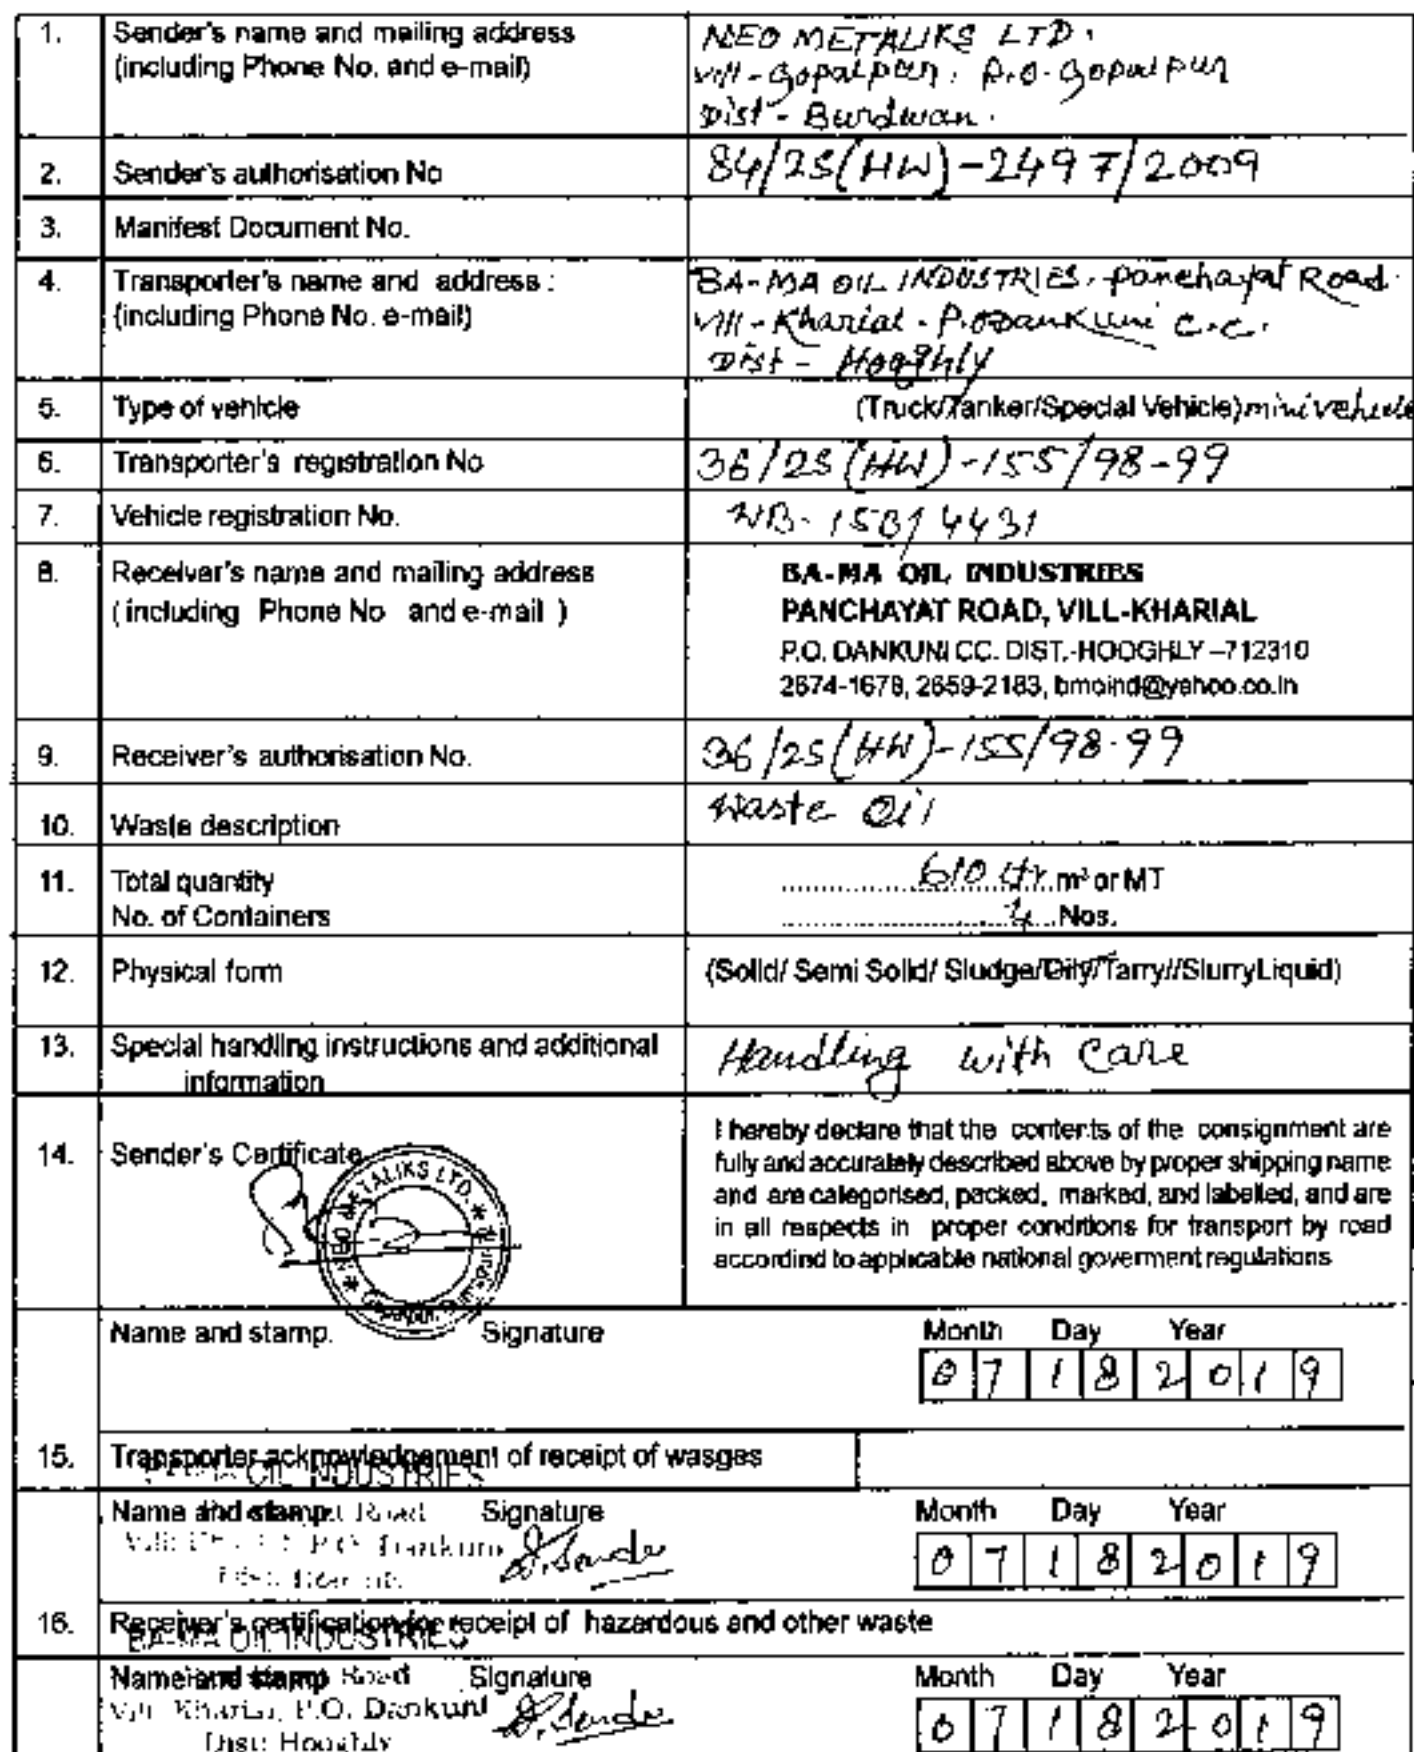 1. Sender's name and mailing address
(including Phone No. and e-mail)
NEO METALIKS LTD.
Vill - Gopalpur, P.O. Gopalpur
Dist - Burdwan.
2. Sender's authorisation No
84/2S(HW)-2497/2009
3. Manifest Document No.
4. Transporter's name and address :
(including Phone No. e-mail)
BA-MA OIL INDUSTRIES. Panchayat Road.
Vill - Kharial - P.O Dankuni C.C.
Dist - Hooghly
5. Type of vehicle
(Truck/Tanker/Special Vehicle) mini vehicle
6. Transporter's registration No
36/2S(HW)-155/98-99
7. Vehicle registration No.
WB-15B/4431
8. Receiver's name and mailing address
(including Phone No and e-mail )
BA-MA OIL INDUSTRIES
PANCHAYAT ROAD, VILL-KHARIAL
P.O. DANKUNI CC. DIST.-HOOGHLY –712310
2674-1678, 2659-2183, bmoind@yahoo.co.in
9. Receiver's authorisation No.
36/2S(HW)-155/98-99
10. Waste description
Waste Oil
11. Total quantity
610 Ltr. m³ or MT
No. of Containers
Nos.
12. Physical form
(Solid/ Semi Solid/ Sludge/Oily/Tarry//SlurryLiquid)
13. Special handling instructions and additional
information
Handling with Care
14. Sender's Certificate
I hereby declare that the contents of the consignment are
fully and accurately described above by proper shipping name
and are categorised, packed, marked, and labelled, and are
in all respects in proper conditions for transport by road
accordind to applicable national goverment regulations
NEO METALIKS LTD.
Name and stamp. Signature
Month Day Year
07 18 2019
15. Transporter acknowledgement of receipt of wasges
OIL INDUSTRIES
Name and stamp. Signature
Road
P.O. Dankuni
Month Day Year
07 18 2019
16. Receiver's certification for receipt of hazardous and other waste
BA-MA OIL INDUSTRIES
Name and stamp Signature
Road
Vill: Kharial, P.O. Dankuni
Dist: Hooghly
Month Day Year
07 18 2019